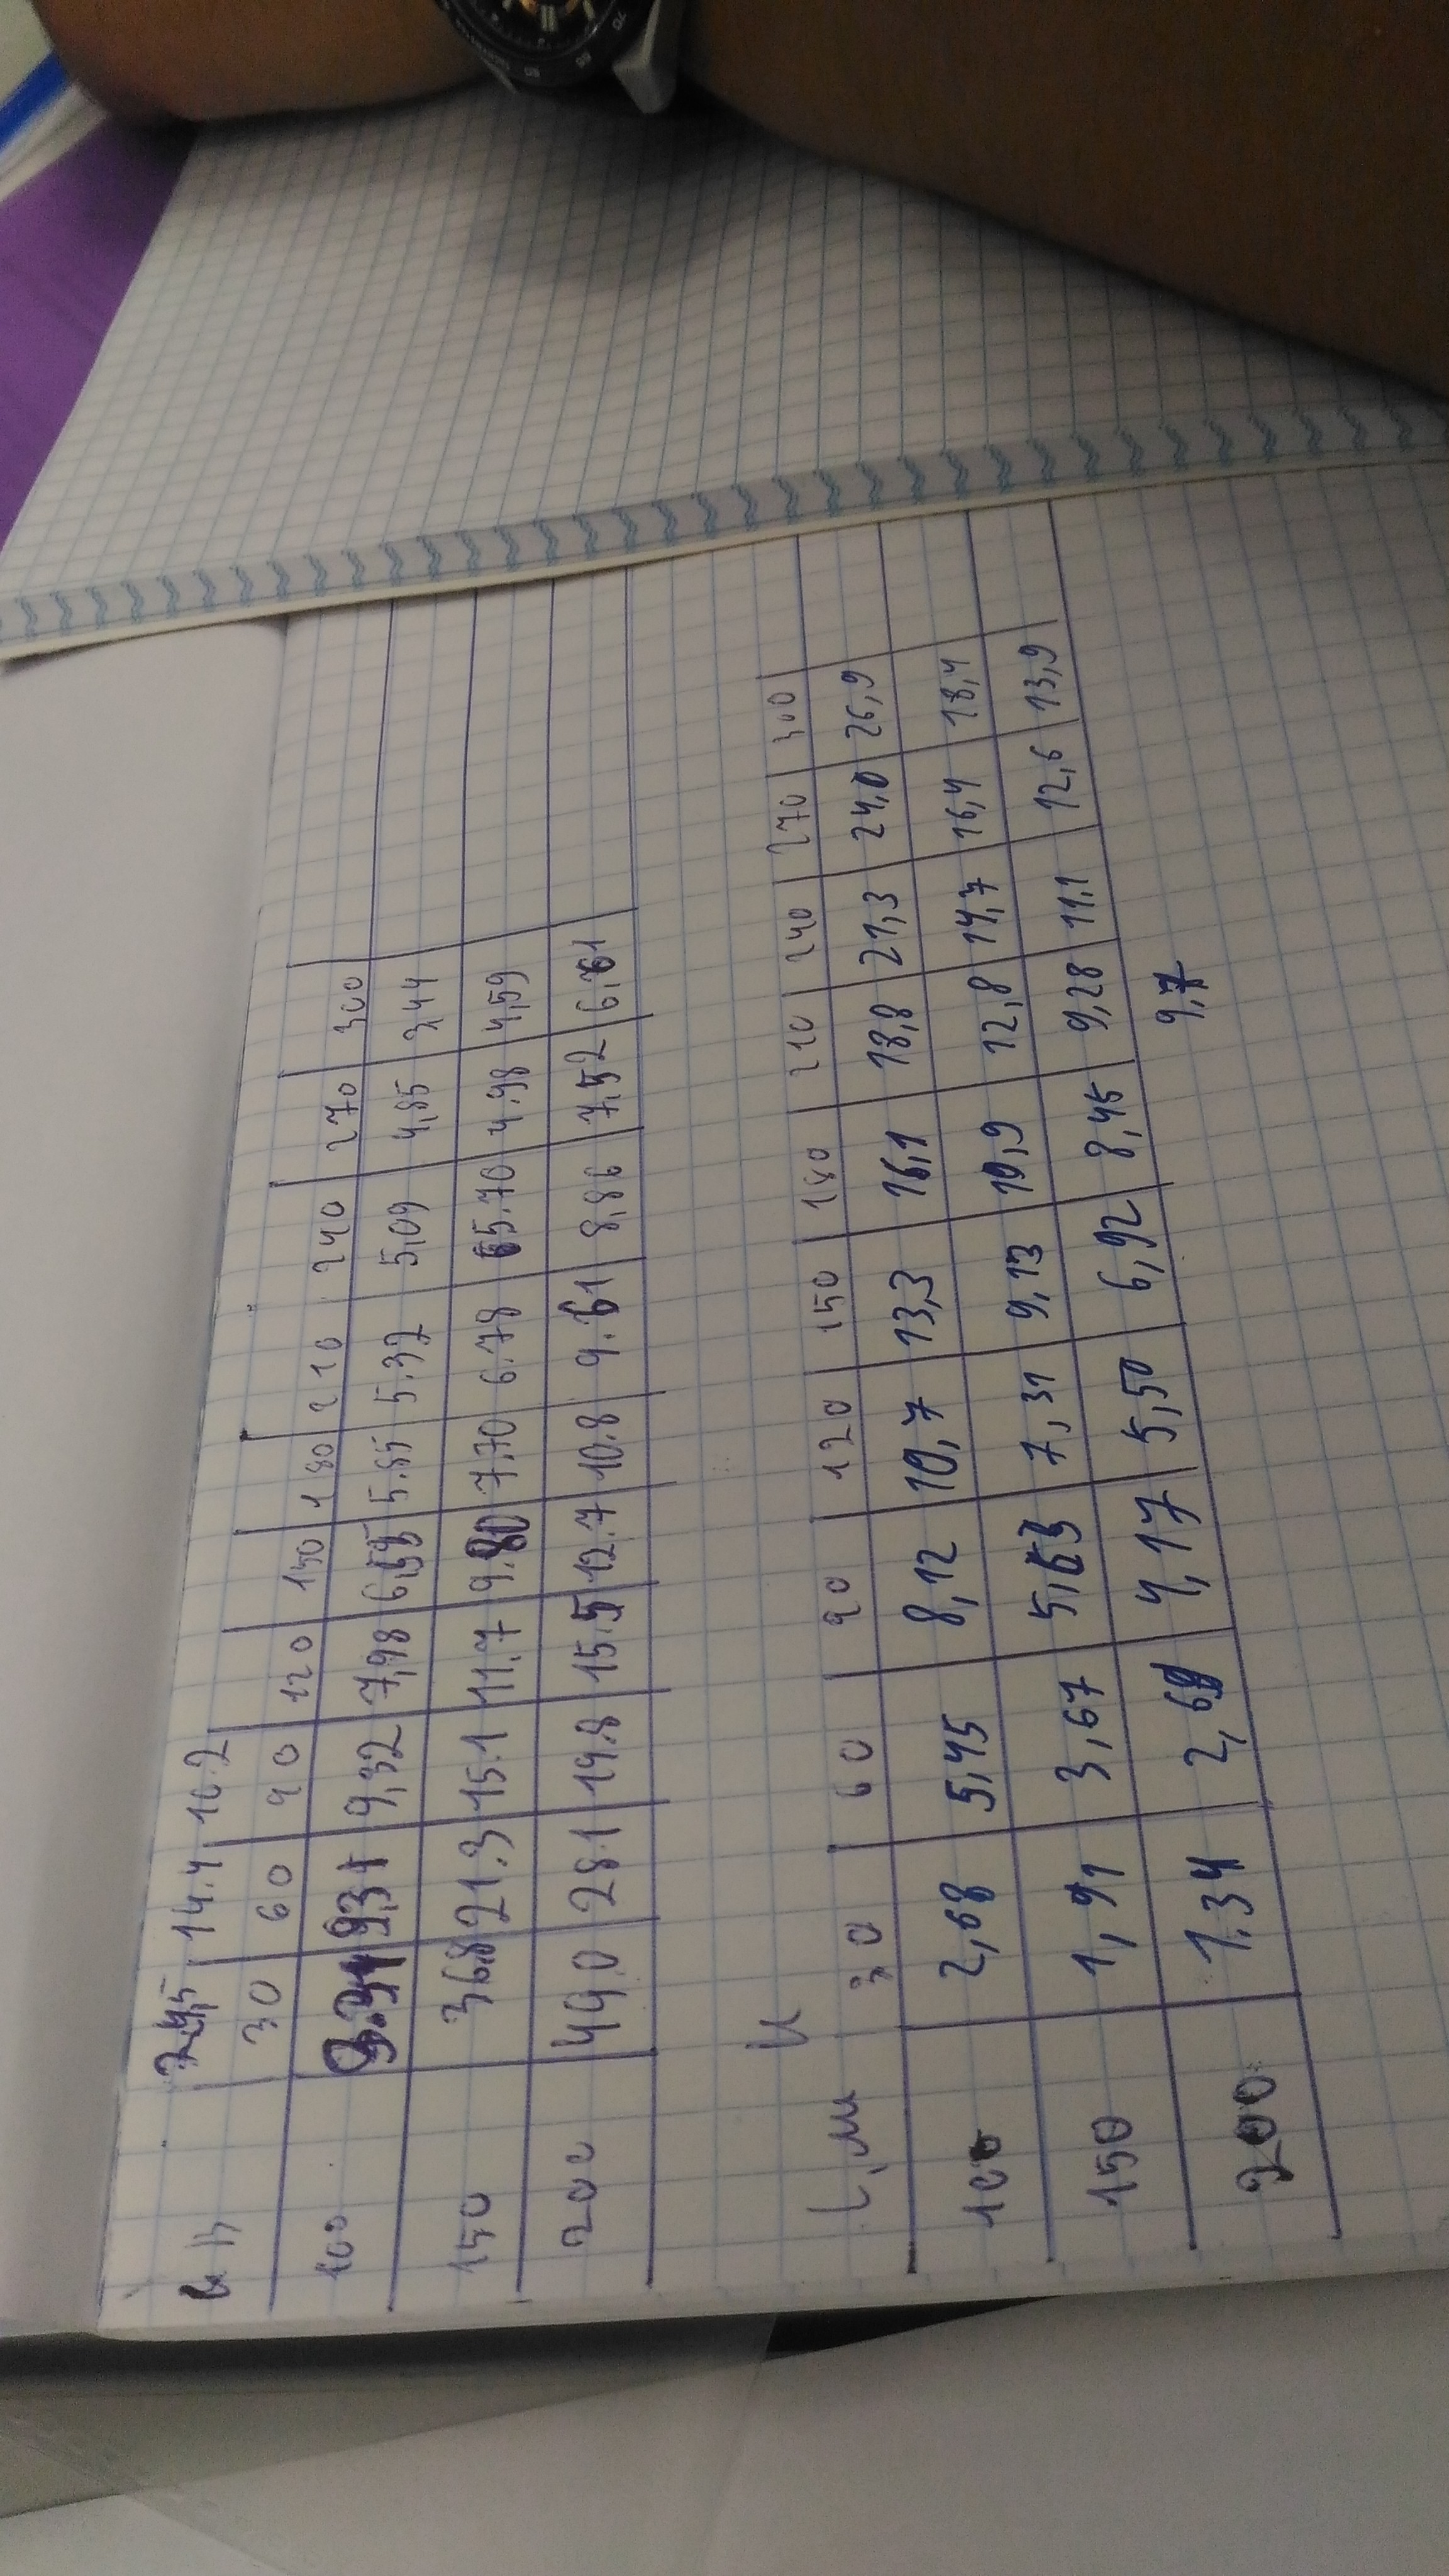 14.4 10.2
30 60 90 120 150 180 210 240 270 300
100 9,31 9,32 7,98 5.85 5.32 5,09 4,85 3,44
150 36.8 21.3 15.1 11.7 9.80 7.70 6.78 5.70 4.98 4,59
200 49.0 28.1 19.8 15.5 12.7 10.8 9.61 8,86 7,52 6,61
U
l, м 30 60 90 120 150 180 210 240 270 300
100 2,68 5,45 8,12 10,7 13,3 16,1 18,8 21,3 24,0 26,9
150 1,91 3,67 5,63 7,31 9,13 10,9 12,8 14,7 16,4 18,4
200 1,34 2,68 4,17 5,50 6,92 8,45 9,28 11,1 12,6 13,9
9,7